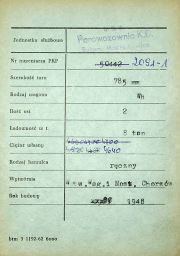 Jednostka służbowa
Parowozownia Kl.
Nr inwentarza PKP 50442 2091-1
Szerokość toru 785 mm
Rodzaj wagonu Wh
Ilość osi 2
Ładowność w t. 8 ton
Ciężar własny
4640
Rodzaj hamulca ręczny
Wytwórnia Wag.i Most. Chorzów
Rok budowy 1948